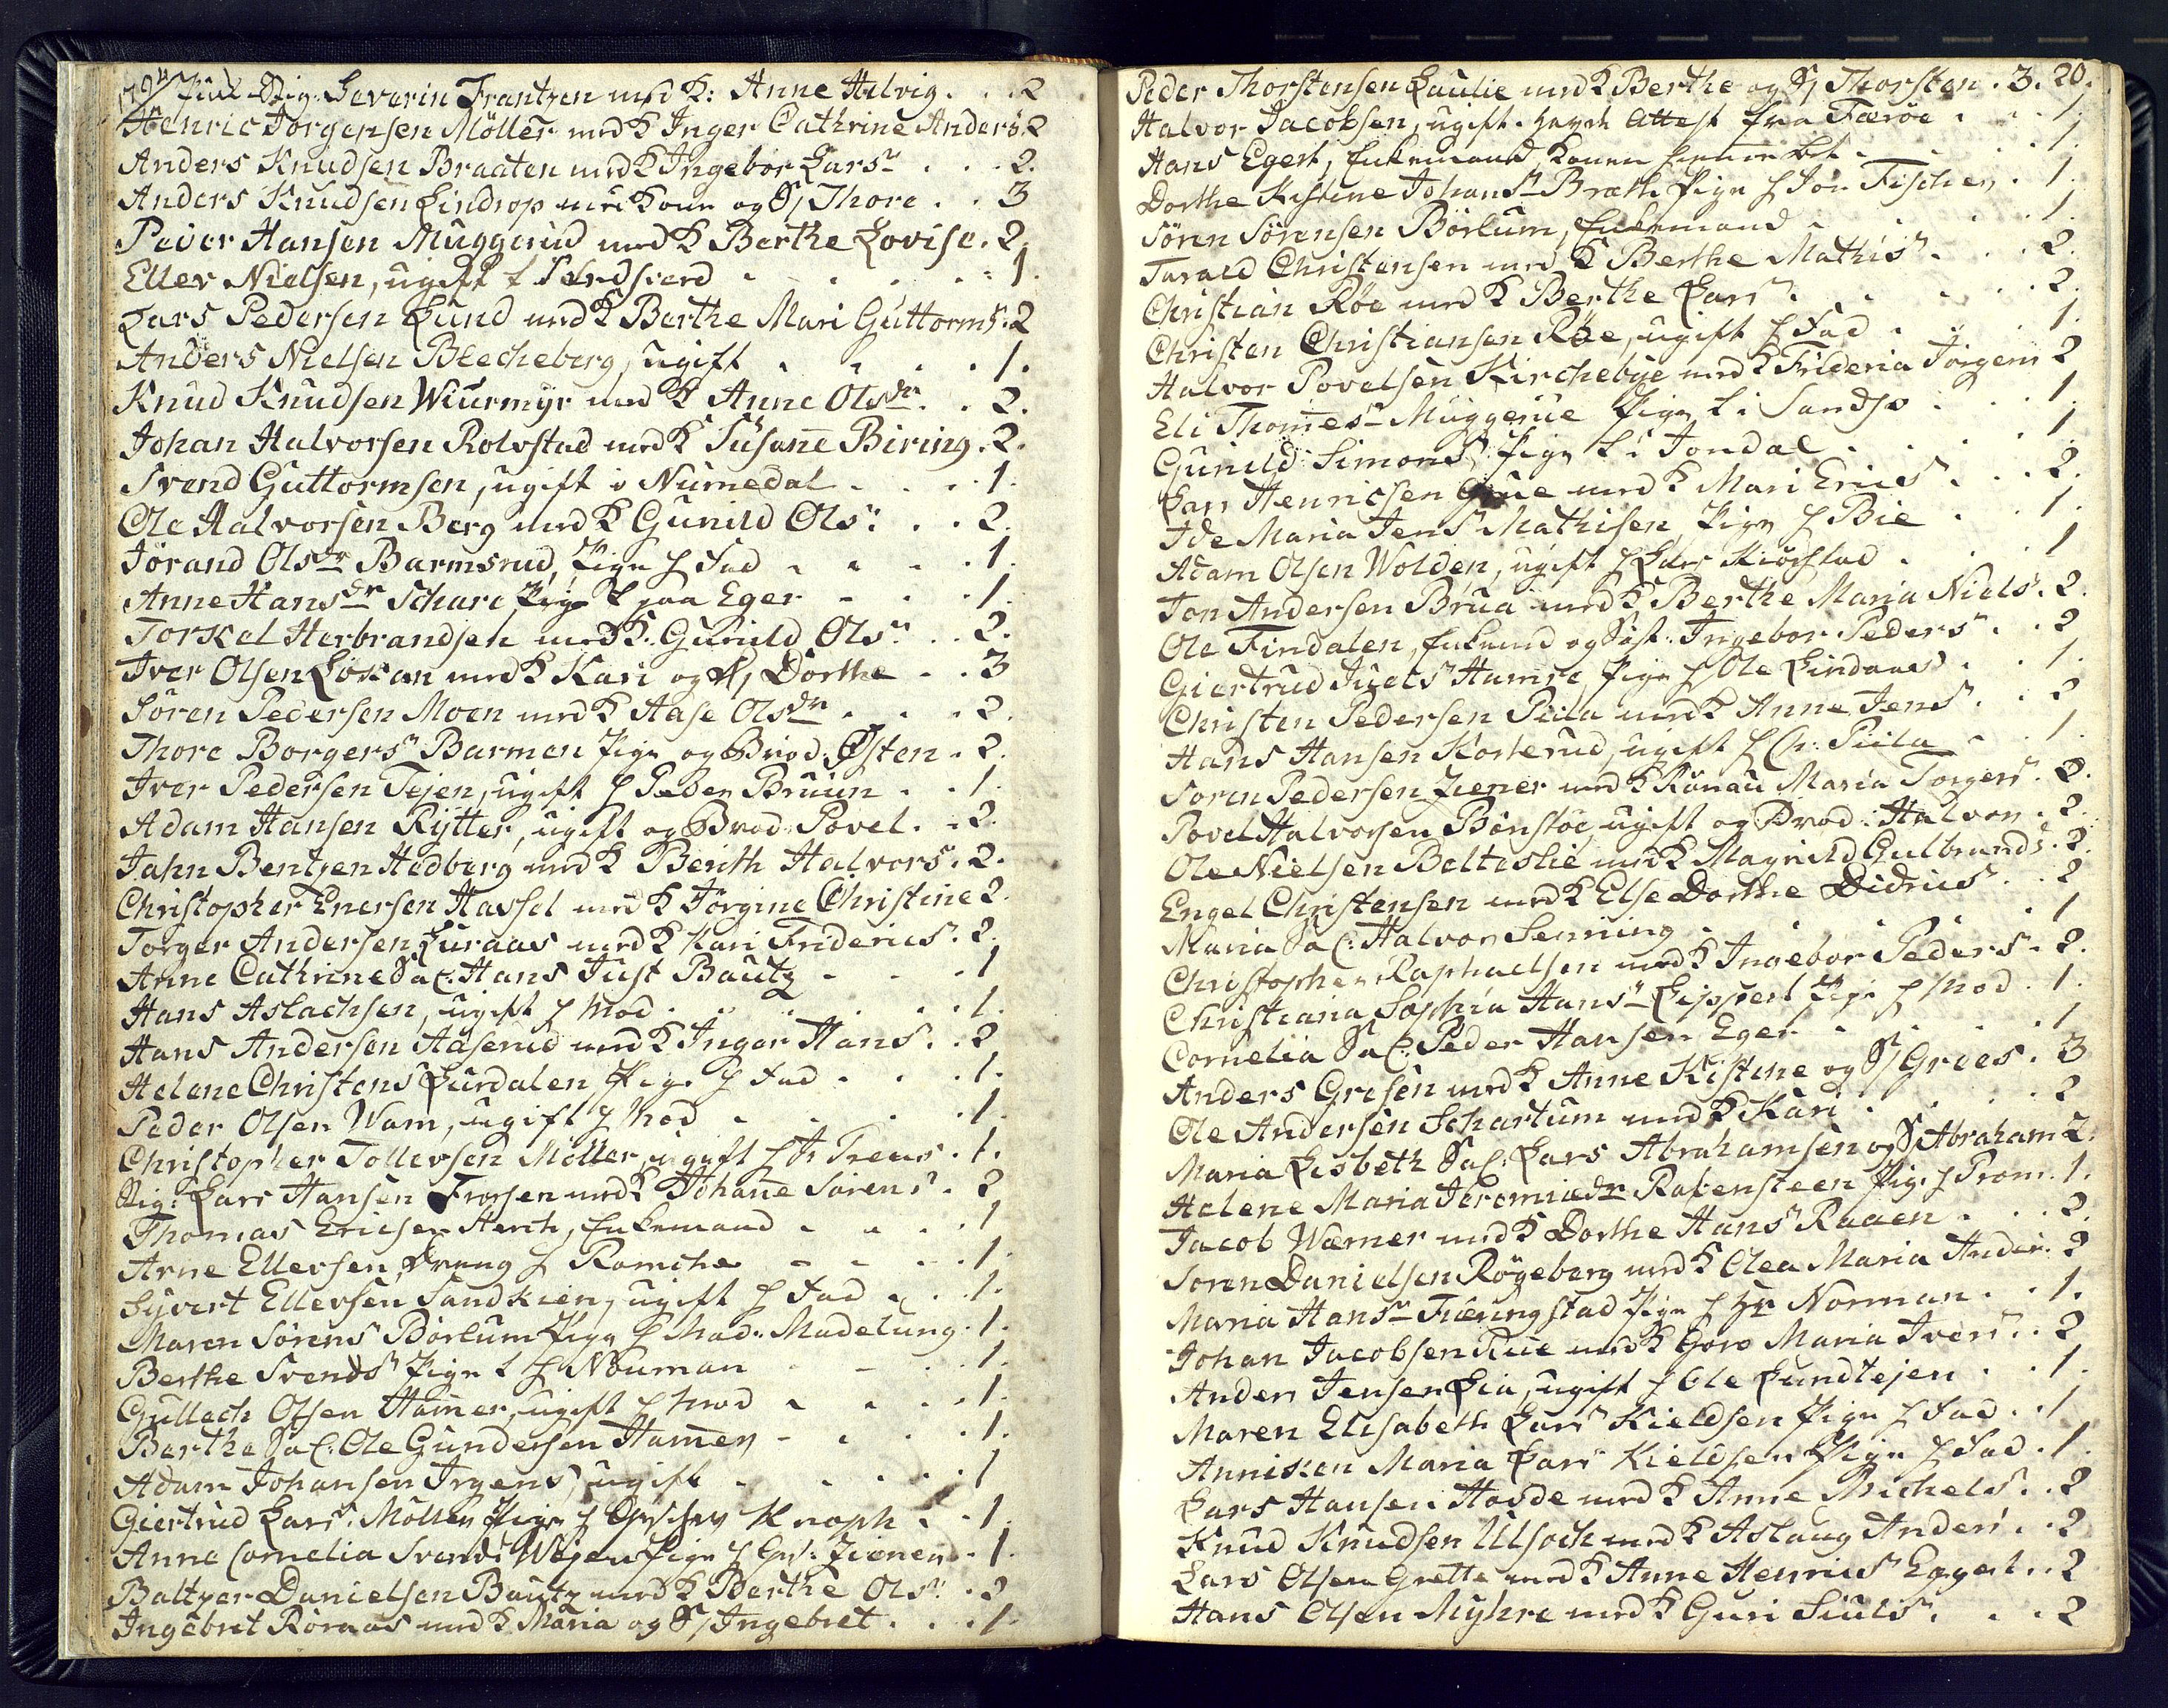 Sig. Severin Frantzen med K: Anne Helvig . . . 2
Henric Jörgensen Möller med K Inger Cathrine Anders. 2
Anders Knudsen Braaten med K Ingebor Lars . . . 2.
Anders Knudsen Lindrop med Kone og S/ Thore . . 3
Peder Hansen Muggerud med K Berthe Lovise . 2
Ellev Nielsen, ugift . . . 1.
Lars Pedersen Lund med K Berthe Mari Guttorms. 2
Anders Nielsen Blecheberg, ugift . . . 1.
Knud Knudsen Wiurmyr med K Anne Olsdr . . 2.
Johan Halvorsen Rolvstad med K Susane Biring . 2.
Svend Guttormsen, ugift i Numedal . . . 1.
Ole Halvorsen Berg med K Gunild Ols . . 2.
Jörand Olsdr Barmsrud, Pige h Fad . . . 1.
Anne Hansdr Schare Pige paa Eger . . . 1.
Torkel Herbrandsen med K. Gunild Ols . . 2.
Iver Olsen med K Kari og D/ Dorthe . . 3
Sören Pedersen Moen med K Aase Olsdr . . . 2.
Thore Borgers Barmen Pige og Brod. Østen . 2.
Iver Pedersen Tejen, ugift h Peder Bruun . . 1.
Adam Hansen Rytter, ugift og Brod. Povel . . 2.
Jahn Bentzen Hedberg med K Berith Halvors . 2.
Christopher Enersen Hassel med K Jörgine Christine 2.
Torger Andersen Luraas med K Kari Friderics . 2.
Anne Cathrine Sal. Hans Just Bautz . . . 1
Hans Aslachsen, ugift h Mod . . . 1.
Hans Andersen Aaserud med K Inger Hans . . 2
Helene Christens Lurdalen Pige h Fad . . . 1.
Peder Olsen Wam, ugift h Mod . . . 1.
Christopher Tollevsen Möller, ugift h Hr . 1.
Sig: Lars Hansen med K Johane Sörens . 2
Thomas Ericsen Herch, Enkemand . . . 1
Arne Ellevsen, Dreng h . . . 1.
Syvert Ellevsen Sandkien, ugift h Fad . . . 1.
Maren Sörens Börlum Pige h Mad. Madelung . 1.
Berthe Svends Pige h Nouman . . . 1.
Gullech Olsen Hamer, ugift h Mod . . . 1.
Berthe Sal: Ole Gundersen Hamer . . . 1.
Adam Johansen Irgens, ugift . . . 1
Giertrud Lars Möller Pige h Knoph . . 1.
Anne Cornelia Svends Wejen Pige h . 1.
Baltzer Danielsen Bautz med K Berthe Ols . 2
Ingebret Roraas med K Maria og S/ Ingebret . . . 1.
Peder Thorstensen Laulie med K Berthe og S/ Thorsten . 3. 20.
Halvor Jacobsen, ugift. Attest fra . . . 1.
Hans Egert, Enkemand, . . . 1.
Dorthe Kistine Johans Pige h Jör Fischer . 1.
Sören Sörensen Börlum, Enkemand . . . 1
Tarald Christensen med K Berthe Mathis . . . 2.
Christian Röe med K Berthe Lars . . . 2.
Christen Christiansen Röe, ugift h Fad . . . 1.
Halvor Povelsen Kirchebye med K Jörgens 2
Eli Thomes Muggerue Pige . . . 1.
Gunild Simons Pige i Jondal . . . 1
Lars Henricsen med K Mari Erics . . . 2.
Ide Maria Jens Mathisen Pige h Bie . . 1.
Adam Olsen Wolden, ugift h Lars . . . 1
Jon Andersen Brua med K Berthe Maria Niels . 2.
Ole Findalen, Enkemd og Söst. Ingebor Peders . . 2
Giertrud Pige h Ole Lindaas . . . 1.
Christen Pedersen Piila med K Anne Jens . . . 2
Hans Hansen Korterud, ugift h Chr: Piila . . 1.
Sören Pedersen Ziener med K Rönau Maria Torgers . 2.
Povel Halvorsen ugift og Brod. Halvor . 2.
Ole Nielsen med K Magnild Gulbrands . 2.
Engel Christensen med K Else Dorthe Didrics . . 2
Maria Sal: Halvor Senning . . . 1
Christopher Raphaelsen med K Ingebor Peders . 2.
Christiana Sophia Hans Lippert Pige h Mod . 1.
Cornelia Sal: Peder Hansen Eger . . . 1
Anders Gresen med K Anne Kistine og S/ Grees . 3
Ole Andersen Schartum med K Kari . . . 2
Maria Lisbeth Sal: Lars Abrahamsen og S/ Abraham 2.
Helene Maria Jeremiædr Rabensteen Pige h . 1.
Jacob Wærner med K Dorthe Hans Raaen . . . 2.
Sören Danielsen Rögeberg med K Olea Maria Anders . 2
Maria Hans Pige h Hr Norman . . 1.
Johan Jacobsen med K Goro Maria Ivers . . 2
Anders Jensen Lia, ugift h Ole Lundtejen . . 1.
Maren Elisabeth Lars Kieldsen Pige h Fad . . 1
Anniken Maria Lars Kieldsen Pige h Fad . 1.
Lars Hansen Hovde med K Anne Michels . . 2
Knud Knudsen Ulsoch med K Aslaug Anders . . 2
Lars Olsen Grette med K Anne Henrics Eggert . . 2
Hans Olsen Myhre med K Guri Siuls . . . 2